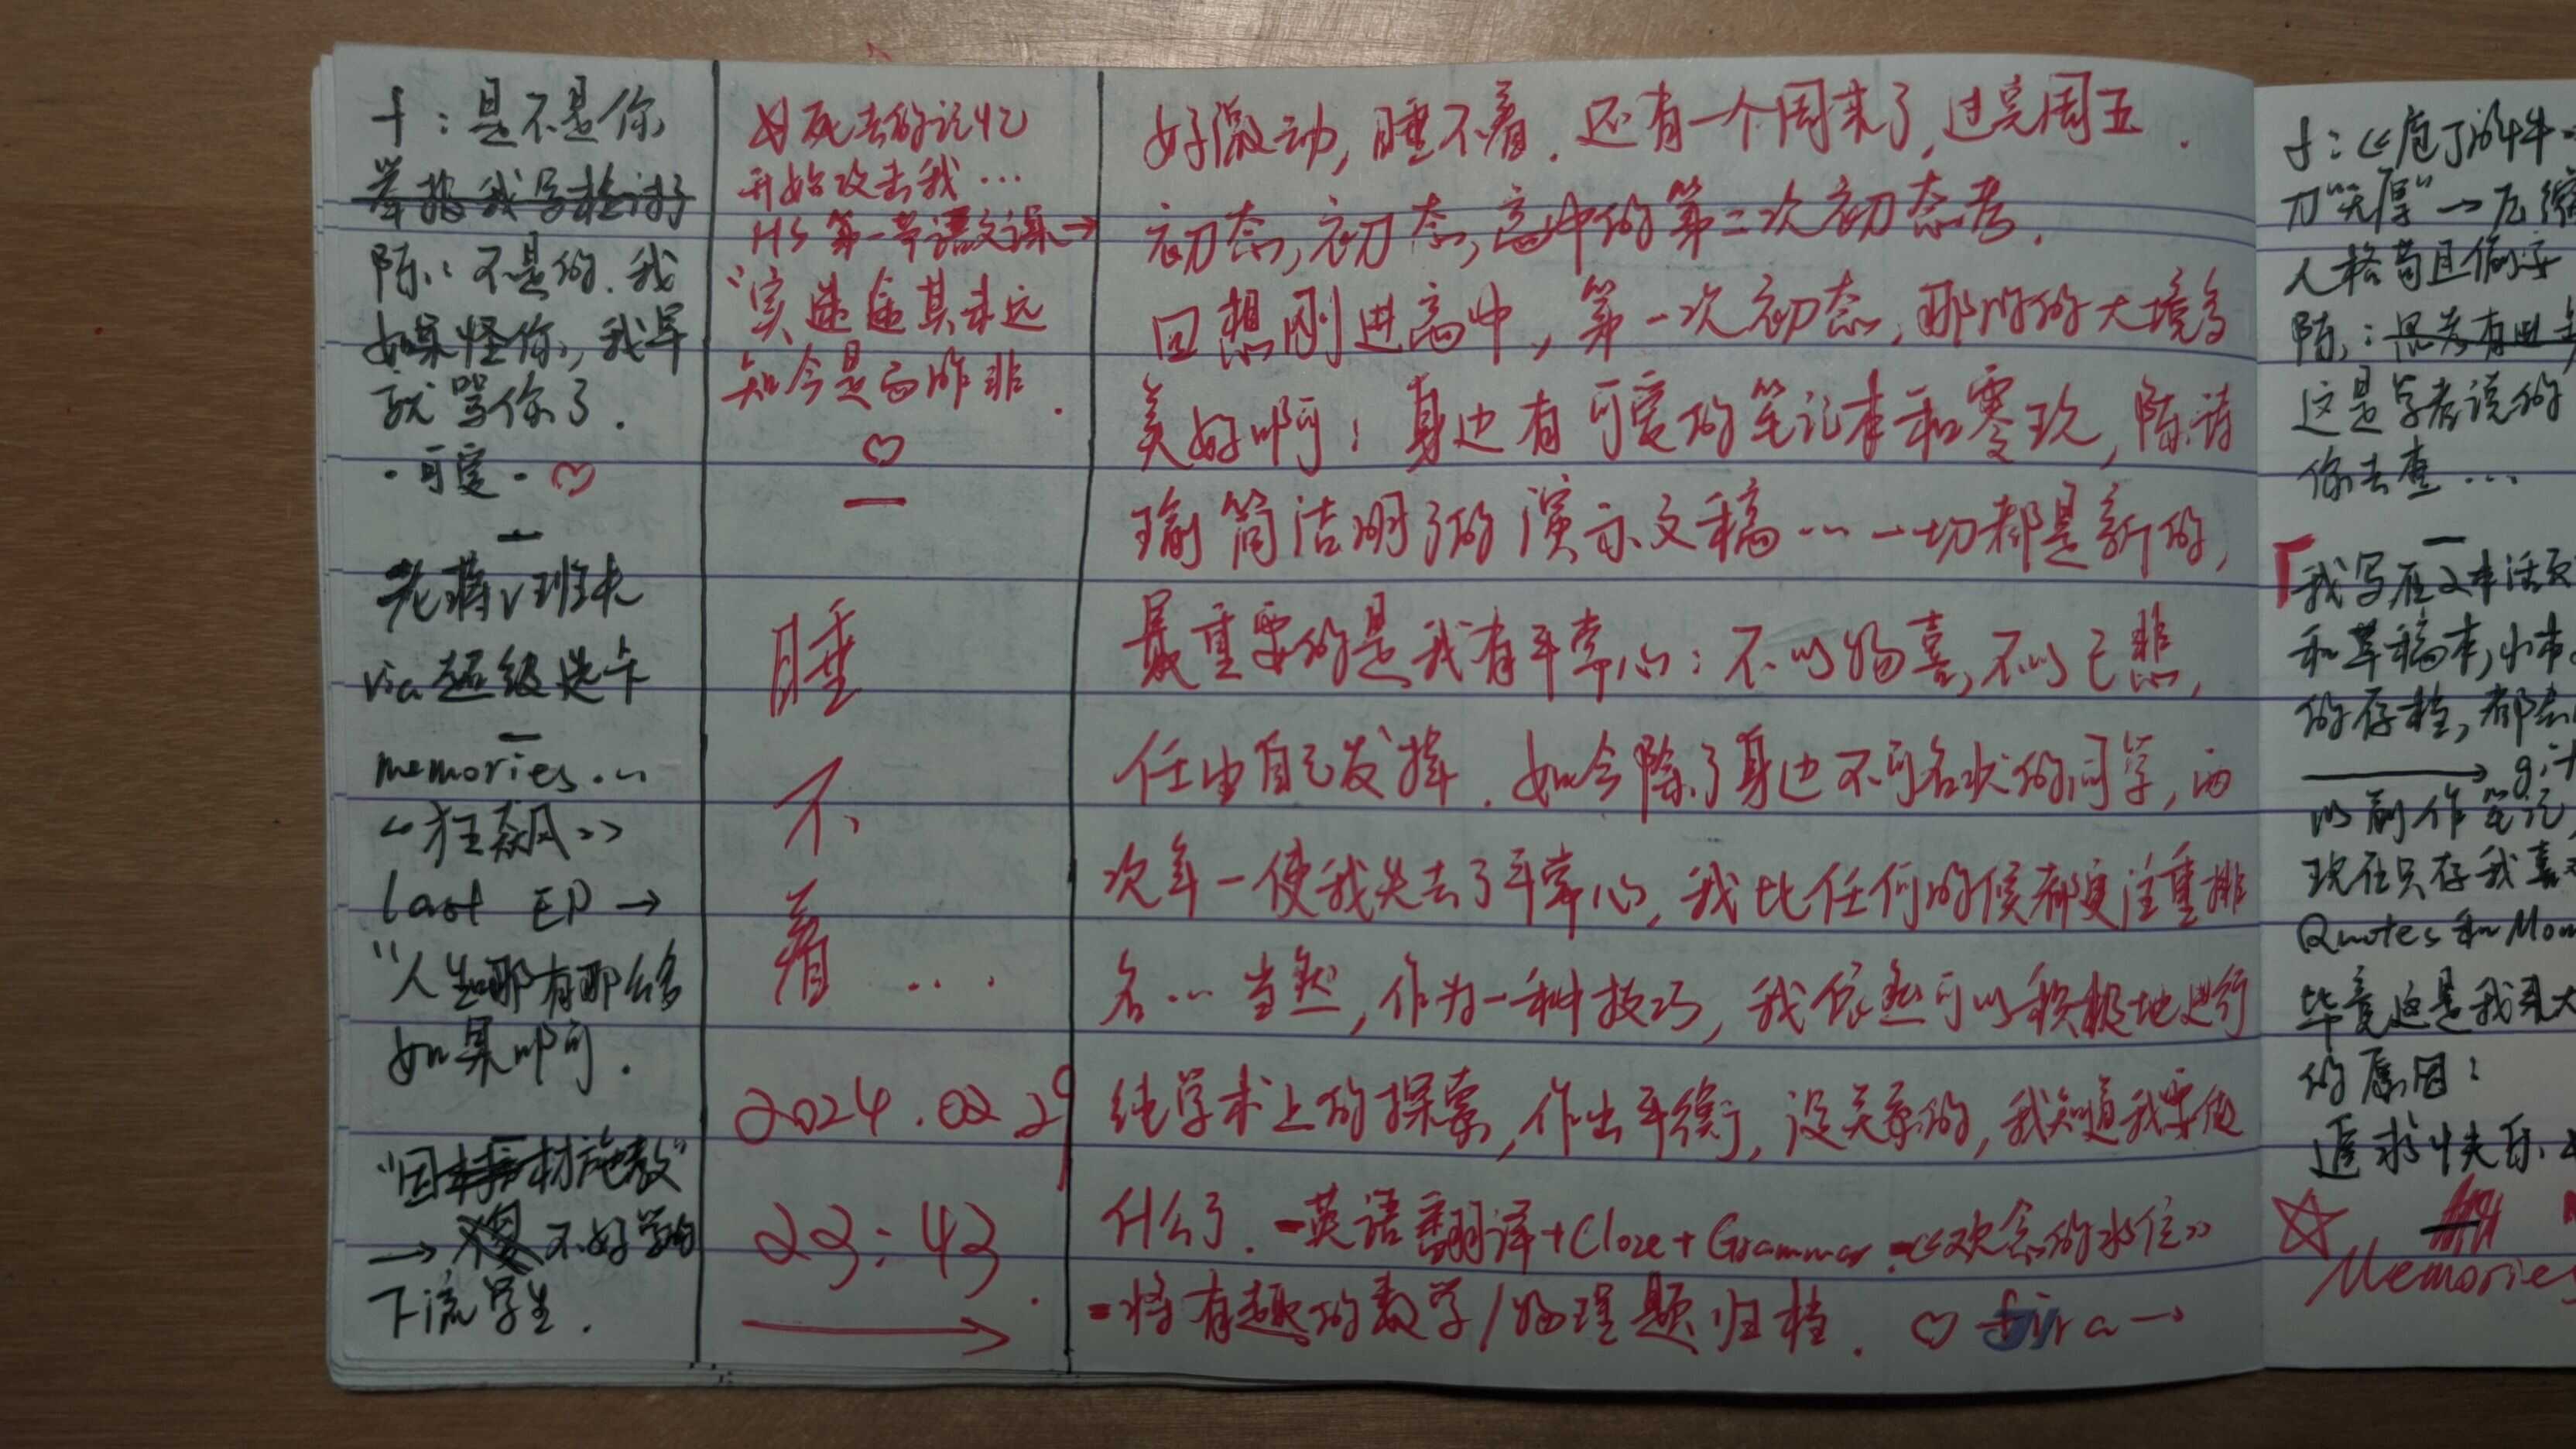 f：是不是你
举报我写检讨
陈：不是的．我
如果怪你，我早
就骂你了．
·可爱·♡
老蒋√班长
via超级选卡
memories…
《狂飙》
last EP →
“人生哪有那么多
如果啊．
“因材施教”
→ 不好学的
下流学生．
死去的记忆
开始攻击我…
HS 第一节语文课→
“实迷途其未远
知今是而昨非．
♡
睡
不
着…
2024.02.29
23:43.
好激动，睡不着．还有一个周末了，过完周五．
初态，初态，高中的第二次初态考．
回想刚进高中，第一次初态，那时的大境多
美好啊：身边有可爱的笔记本和零玖，陈诗
瑜简洁明了的演示文稿…一切都是新的，
最重要的是我有平常心：不以物喜，不以己悲，
任由自己发挥．如今除了身边不可名状的同学，两
次年一使我失去了平常心，我比任何时候都更注重排
名…当然，作为一种技巧，我依然可以积极地进行
纯学术上的探索，作出平衡，没关系的，我知道我要做
什么了．-英语翻译+Cloze+Grammar.《欢念的水位》
=将有趣的数学/物理题归档．♡
f：《庖丁解牛
刀“无厚”→
人格苟且偷
陈：
这是学者说的
你去查…
「我写在文本活页
和草稿本，小本
的存档，都
→ git
以前作笔记，
现在只存我喜
Quotes和Mom
毕竟这是我最大
的原因：
追求快乐
☆
Memories